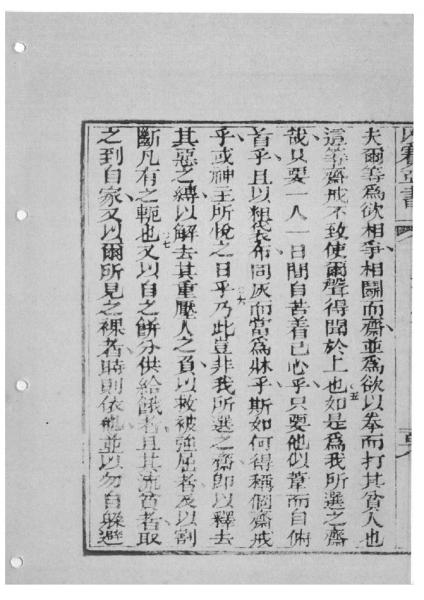 賽亞書
夫爾等爲欲相爭相鬬而齋並爲欲以拳而打其貧人也
這等齋戒不致使爾聲得聞於上也五如是爲我所選之齋
哉只要一人一日間自苦着己心乎只要他似葦而自俯
首乎且以粗袋布同灰而當爲牀乎斯如何得稱個齋戒
乎或神主所悅之日乎六乃此豈非我所選之齋卽以釋去
其惡之縛以解去其重壓人之負以救被強屈者及以割
斷凡有之軛也七又以自之餅分供給餓者且其流貧者取
之到自家又以爾所見之裸者時則依他並以勿自躱避